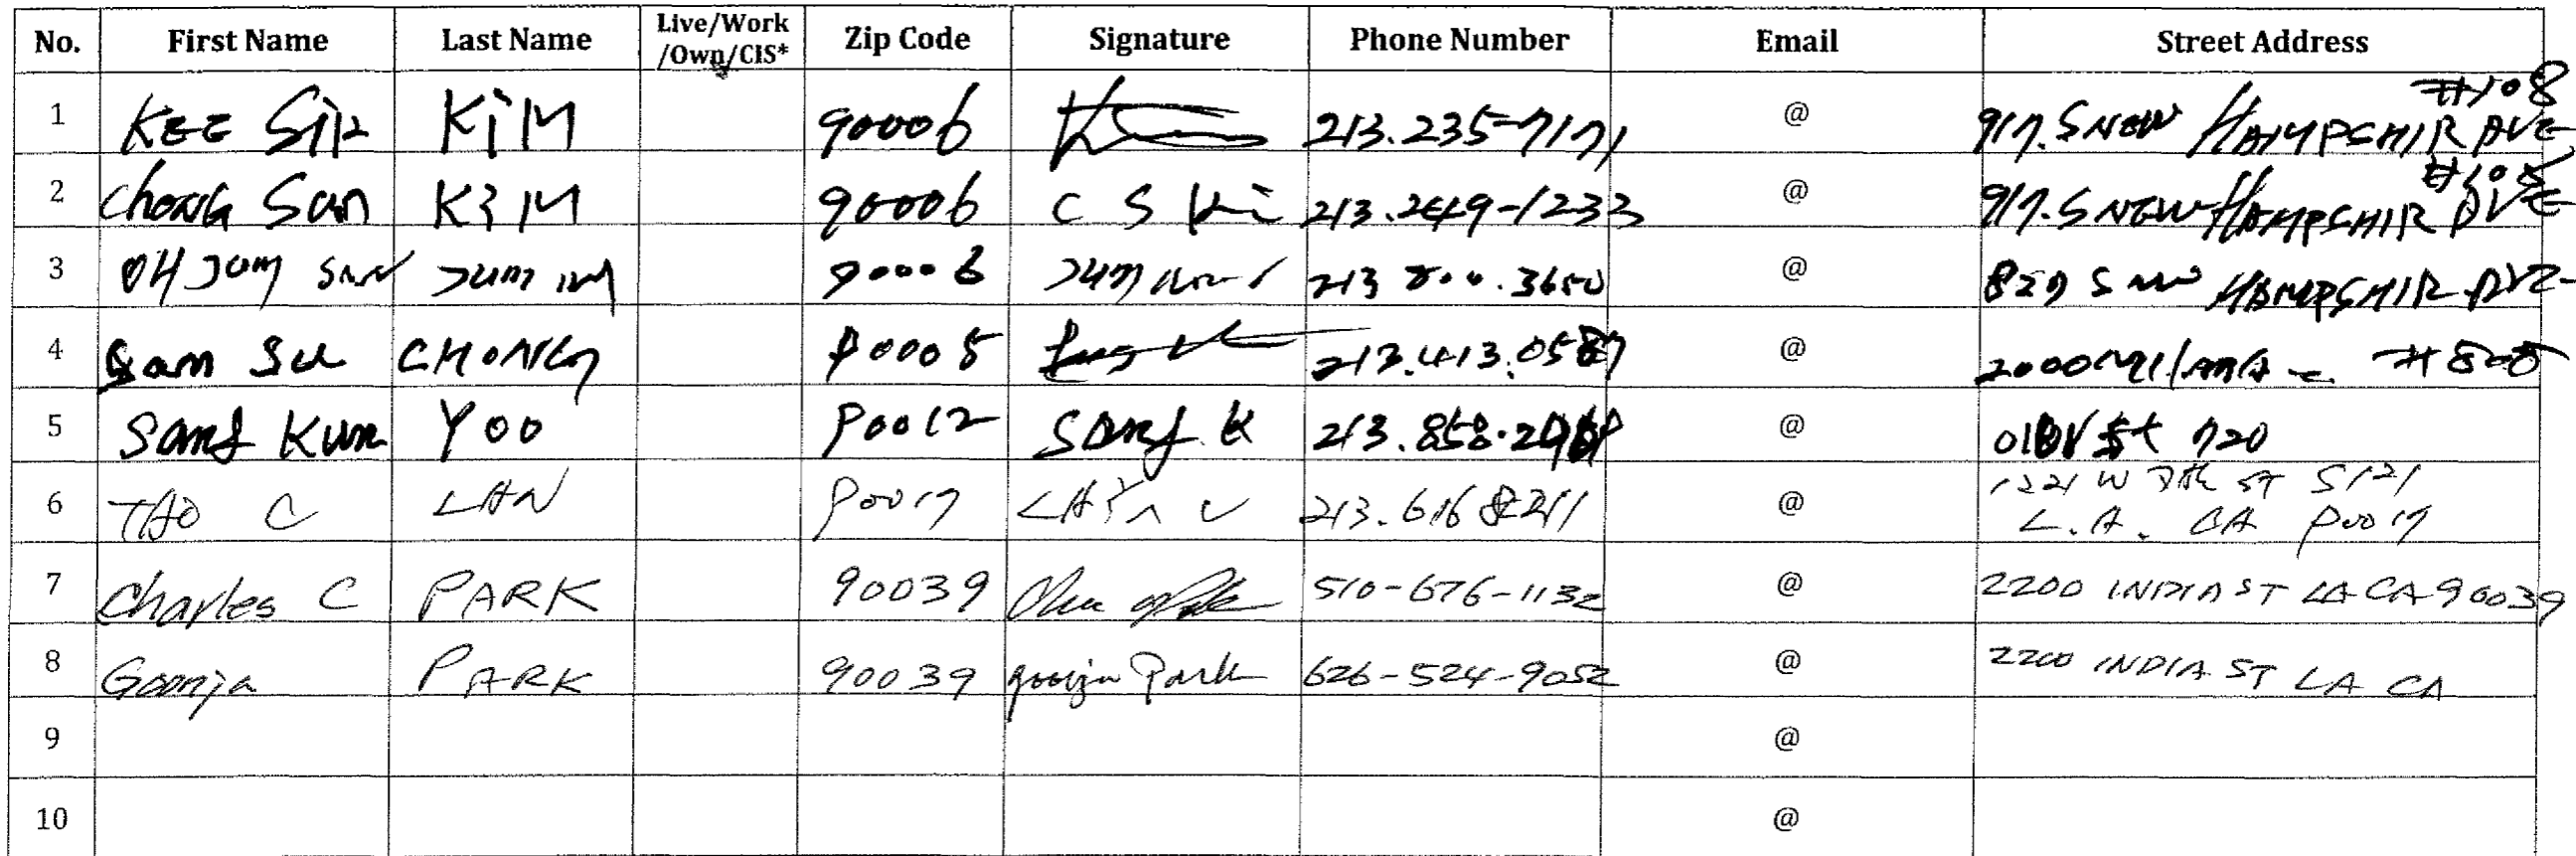 No. First Name Last Name Live/Work/Own/CIS* Zip Code Signature Phone Number Email Street Address
1 KEE Sik KiM 90006 213.235-7171 @ 917. S NEW HAMPSHIR AVE #108
2 chong San KiM 90006 C S Ki 213.249-1233 @ 917. S NEW HAMPSHIR AVE #108
3 OH JUM 90006 213 @ S HAMPSHIR AVE
4 Sam Su CHONG 90005 213.413.0587 @ 2000
5 Sang Kun Yoo 90012 Sang K 213.858. @ st 720
6 TAO C LAN 90017 213.616 8211 @ 1221 W 7th ST S121
L.A. CA 90017
7 Charles C PARK 90039 510-676-1132 @ 2200 INDIA ST LA CA 90039
8 Goonja PARK 90039 goonja Park 626-524-9052 @ 2200 INDIA ST LA CA
9 @
10 @